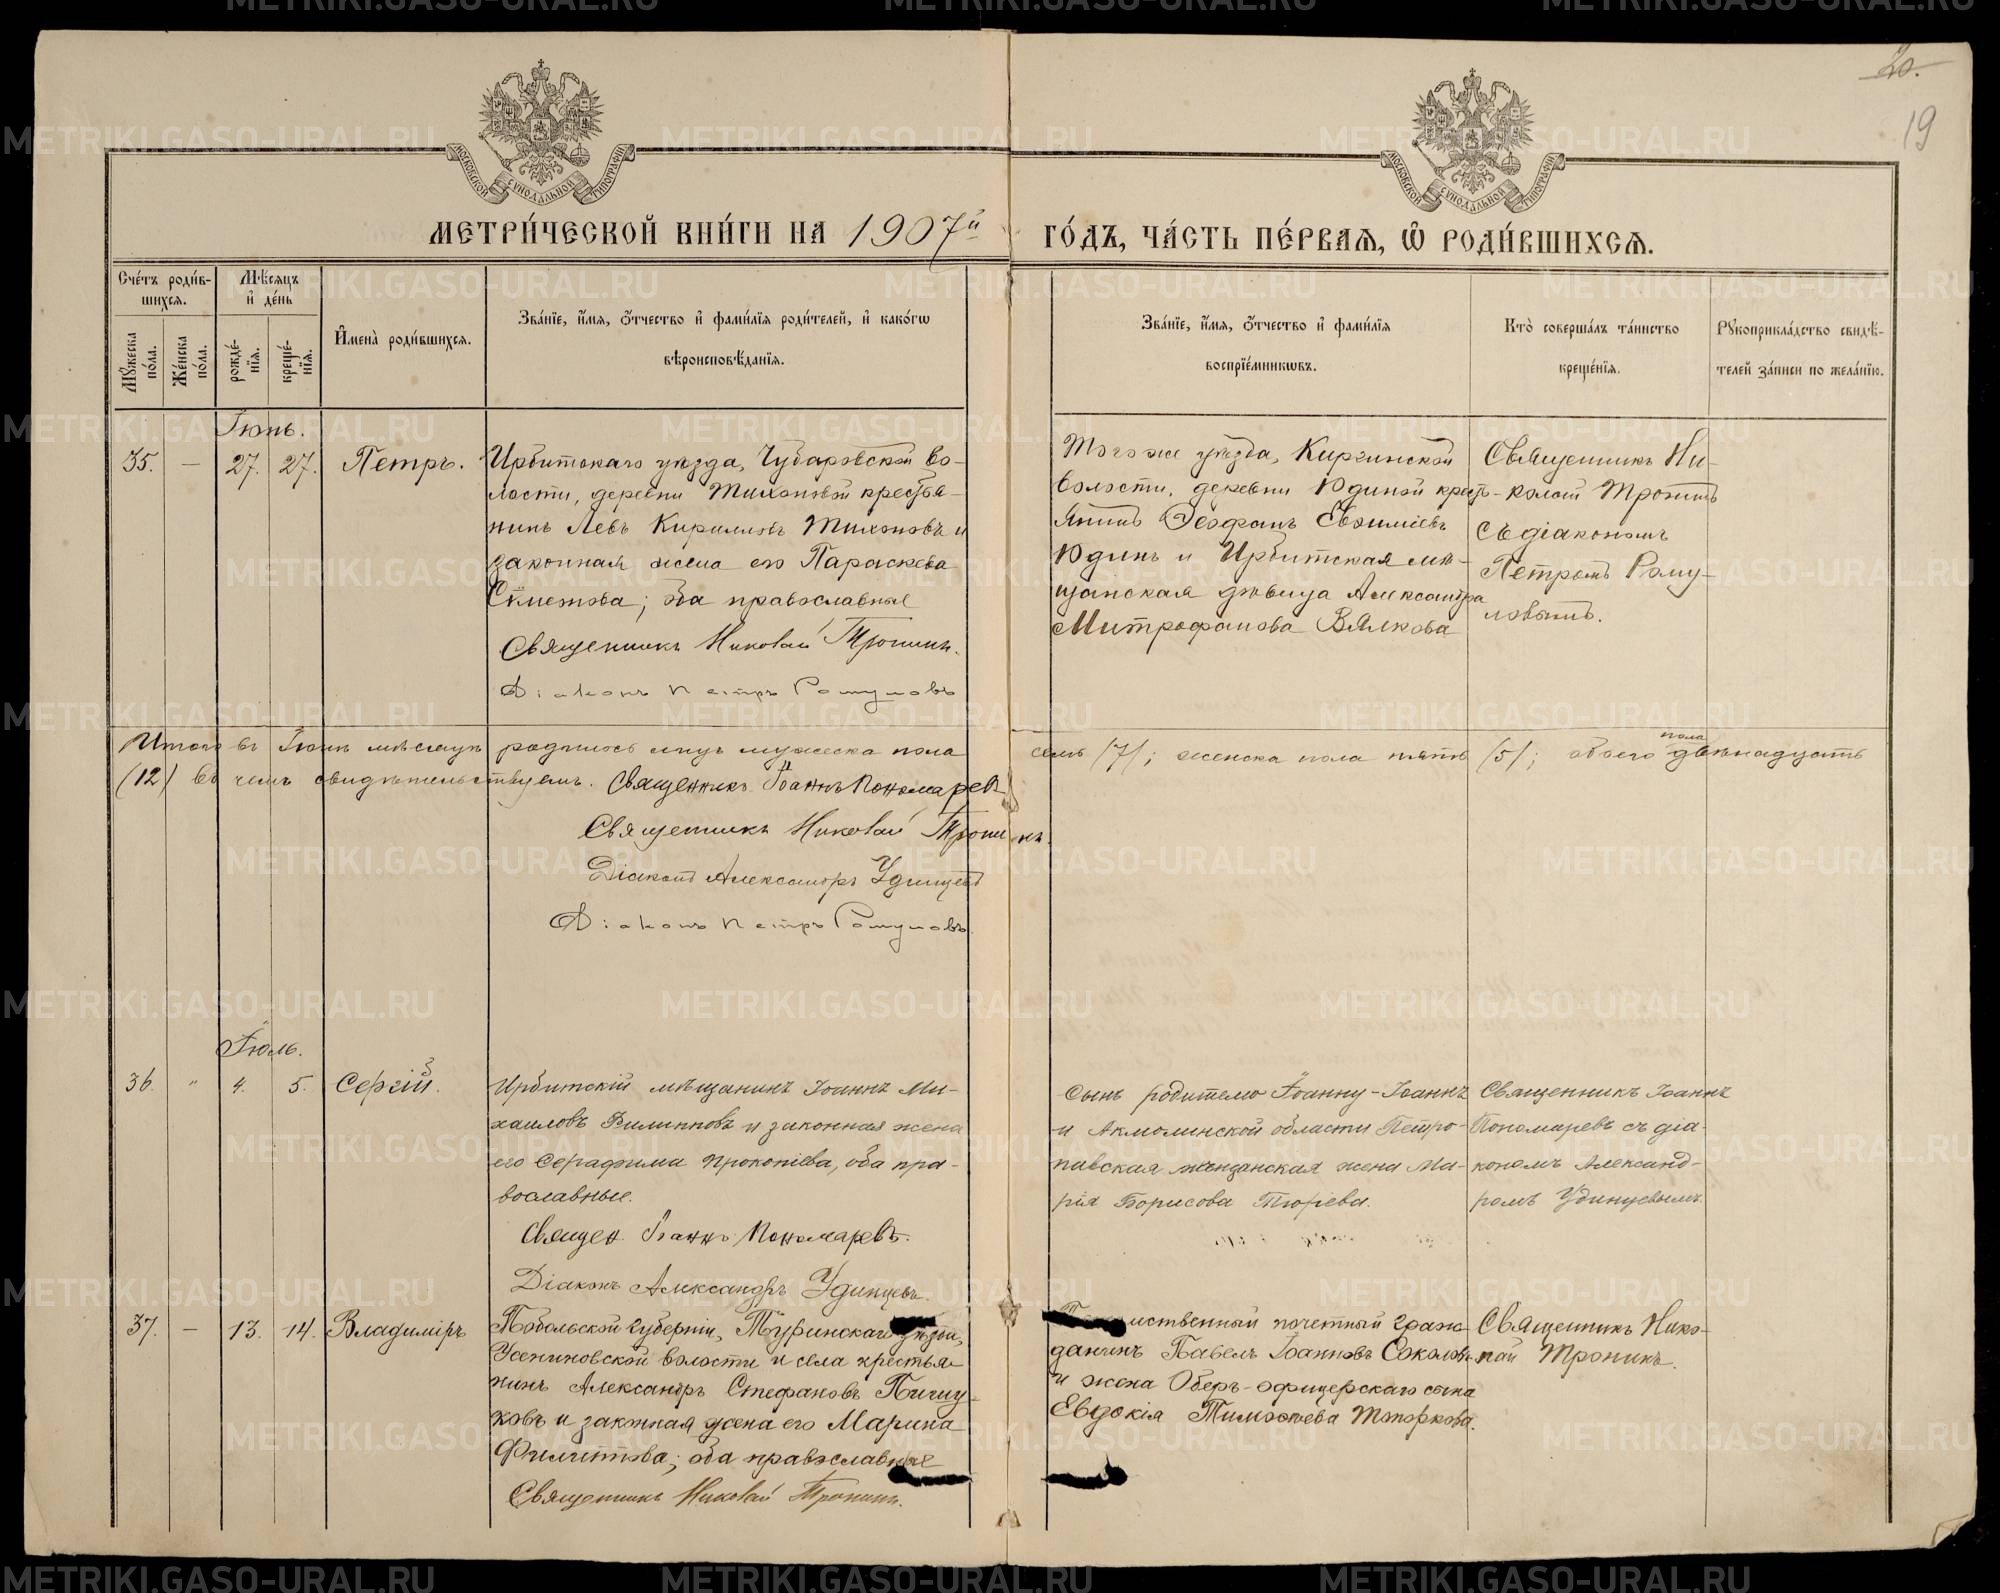 20.
19
МОСКОВСКОЙ СѴНОДАЛЬНОЙ ТИПОГРАФІИ
МОСКОВСКОЙ СѴНОДАЛЬНОЙ ТИПОГРАФІИ
МЕТРИ́ЧЕСКОЙ КНИ́ГИ НА 1907й ГО́ДЪ, ЧА́СТЬ ПЕ́РВАЯ, Ѡ҆ РОДИ́ВШИХСЯ.
Сче́тъ роди́в-
шихся.
Мꙋ́жеска по́ла.
Же́нска по́ла.
Мѣ́сяцъ
и҆ де́нь
рожде́-нїя.
креще́-нїя.
И҆мена̀ роди́вшихся.
Зва́нїе, и҆́мя, ѻ҆́тчество и҆ фами́лїя роди́телей, и҆ како́гѡ
вѣроисповѣ́данїя.
Зва́нїе, и҆́мя, ѻ҆́тчество и҆ фами́лїя
воспрїе́мникѡвъ.
Кто̀ соверша́лъ та́инство
креще́нїя.
Рꙋкоприкла́дство свидѣ́-
телей за́писи по жела́нїю.
Іюнь.
35. — 27. 27. Петръ.
Ирбитскаго уѣзда, Чубаровской во-
лости, деревни Тихоновой крестья-
нинъ Левъ Кирилловъ Тихоновъ и
законная жена его Параскева
Сѵмеонова; оба православные
Священникъ Николай Тронинъ.
Діаконъ Петръ Ромуловъ
Того же уѣзда, Киргинской
волости, деревни Юдиной крест-
янинъ Ѳеофанъ Евѳиміевъ
Юдинъ и Ирбитская мѣ-
щанская дѣвица Александра
Митрофанова Вялкова
Священникъ Ни-
колай Тронинъ
съ діакономъ
Петромъ Рому-
ловымъ.
Итого въ Іюнѣ мѣсяцѣ родилось лицъ мужеска пола семь (7); женска пола пять (5); обоего пола двѣнадцать
(12) въ чемъ свидѣтельствуемъ. Священникъ Іоаннъ Пономаревъ
Священникъ Николай Тронинъ.
Діаконъ Александръ Удинцевъ
Діаконъ Петръ Ромуловъ.
Іюль.
36. " 4. 5. Сергій.
Ирбитскій мѣщанинъ Іоаннъ Ми-
хаиловъ Филипповъ и законная жена
его Серафима Прокопіева, оба пра-
вославные.
Священ. Іоаннъ Пономаревъ.
Діаконъ Александръ Удинцевъ.
Сынъ родителю Іоанну - Іоаннъ
и Акмолинской области Петро-
павская мѣщанская жена Ма-
рія Борисова
Священникъ Іоаннъ
Пономаревъ съ діа-
кономъ Александ-
ромъ Удинцевымъ.
37. — 13. 14. Владиміръ
Тобольской губерніи, Туринскаго уѣзда,
Усениновской волости и села крестья-
нинъ Александръ Стефановъ
и законная жена его Марина
Филиппова; оба православные
Священникъ Николай Тронинъ.
почетный граж-
данинъ Павелъ Іоанновъ Соколовъ
и жена Оберъ-офицерскаго сына
Евдокія Тимоѳеева Топоркова.
Священникъ Нико-
лай Тронинъ.
METRIKI.GASO-URAL.RU